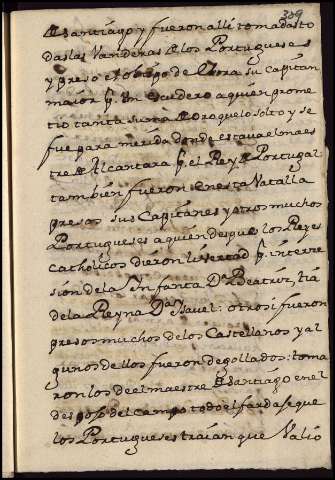 309
de Santiago y fueron alli tomadas to
das las Vanderas de los Portugueses
y preso el obispo de Ebora su Capitan
maior p. Un escudero a quien prome
tio tanta suma de oro que lo solto y se
fue para merida donde estaua el maes
tre de Alcantara p. el Rey de Portugal
tambien fueron en esta Vatalla
presos sus Capitanes y otros muchos
Portugueses a quien despues los Reyes
Catholicos dieron livertad p. interse
sion de la Infanta Da. Beatriz, tia
de la Reyna Da. Ysauel: otrosi fueron
presos muchos de los Castellanos y al
gunos de llos fueron degollados: toma
ron los de el maestre de Santiago en el
despojo del campo todo el fardaje que
los Portugueses traian que Valio